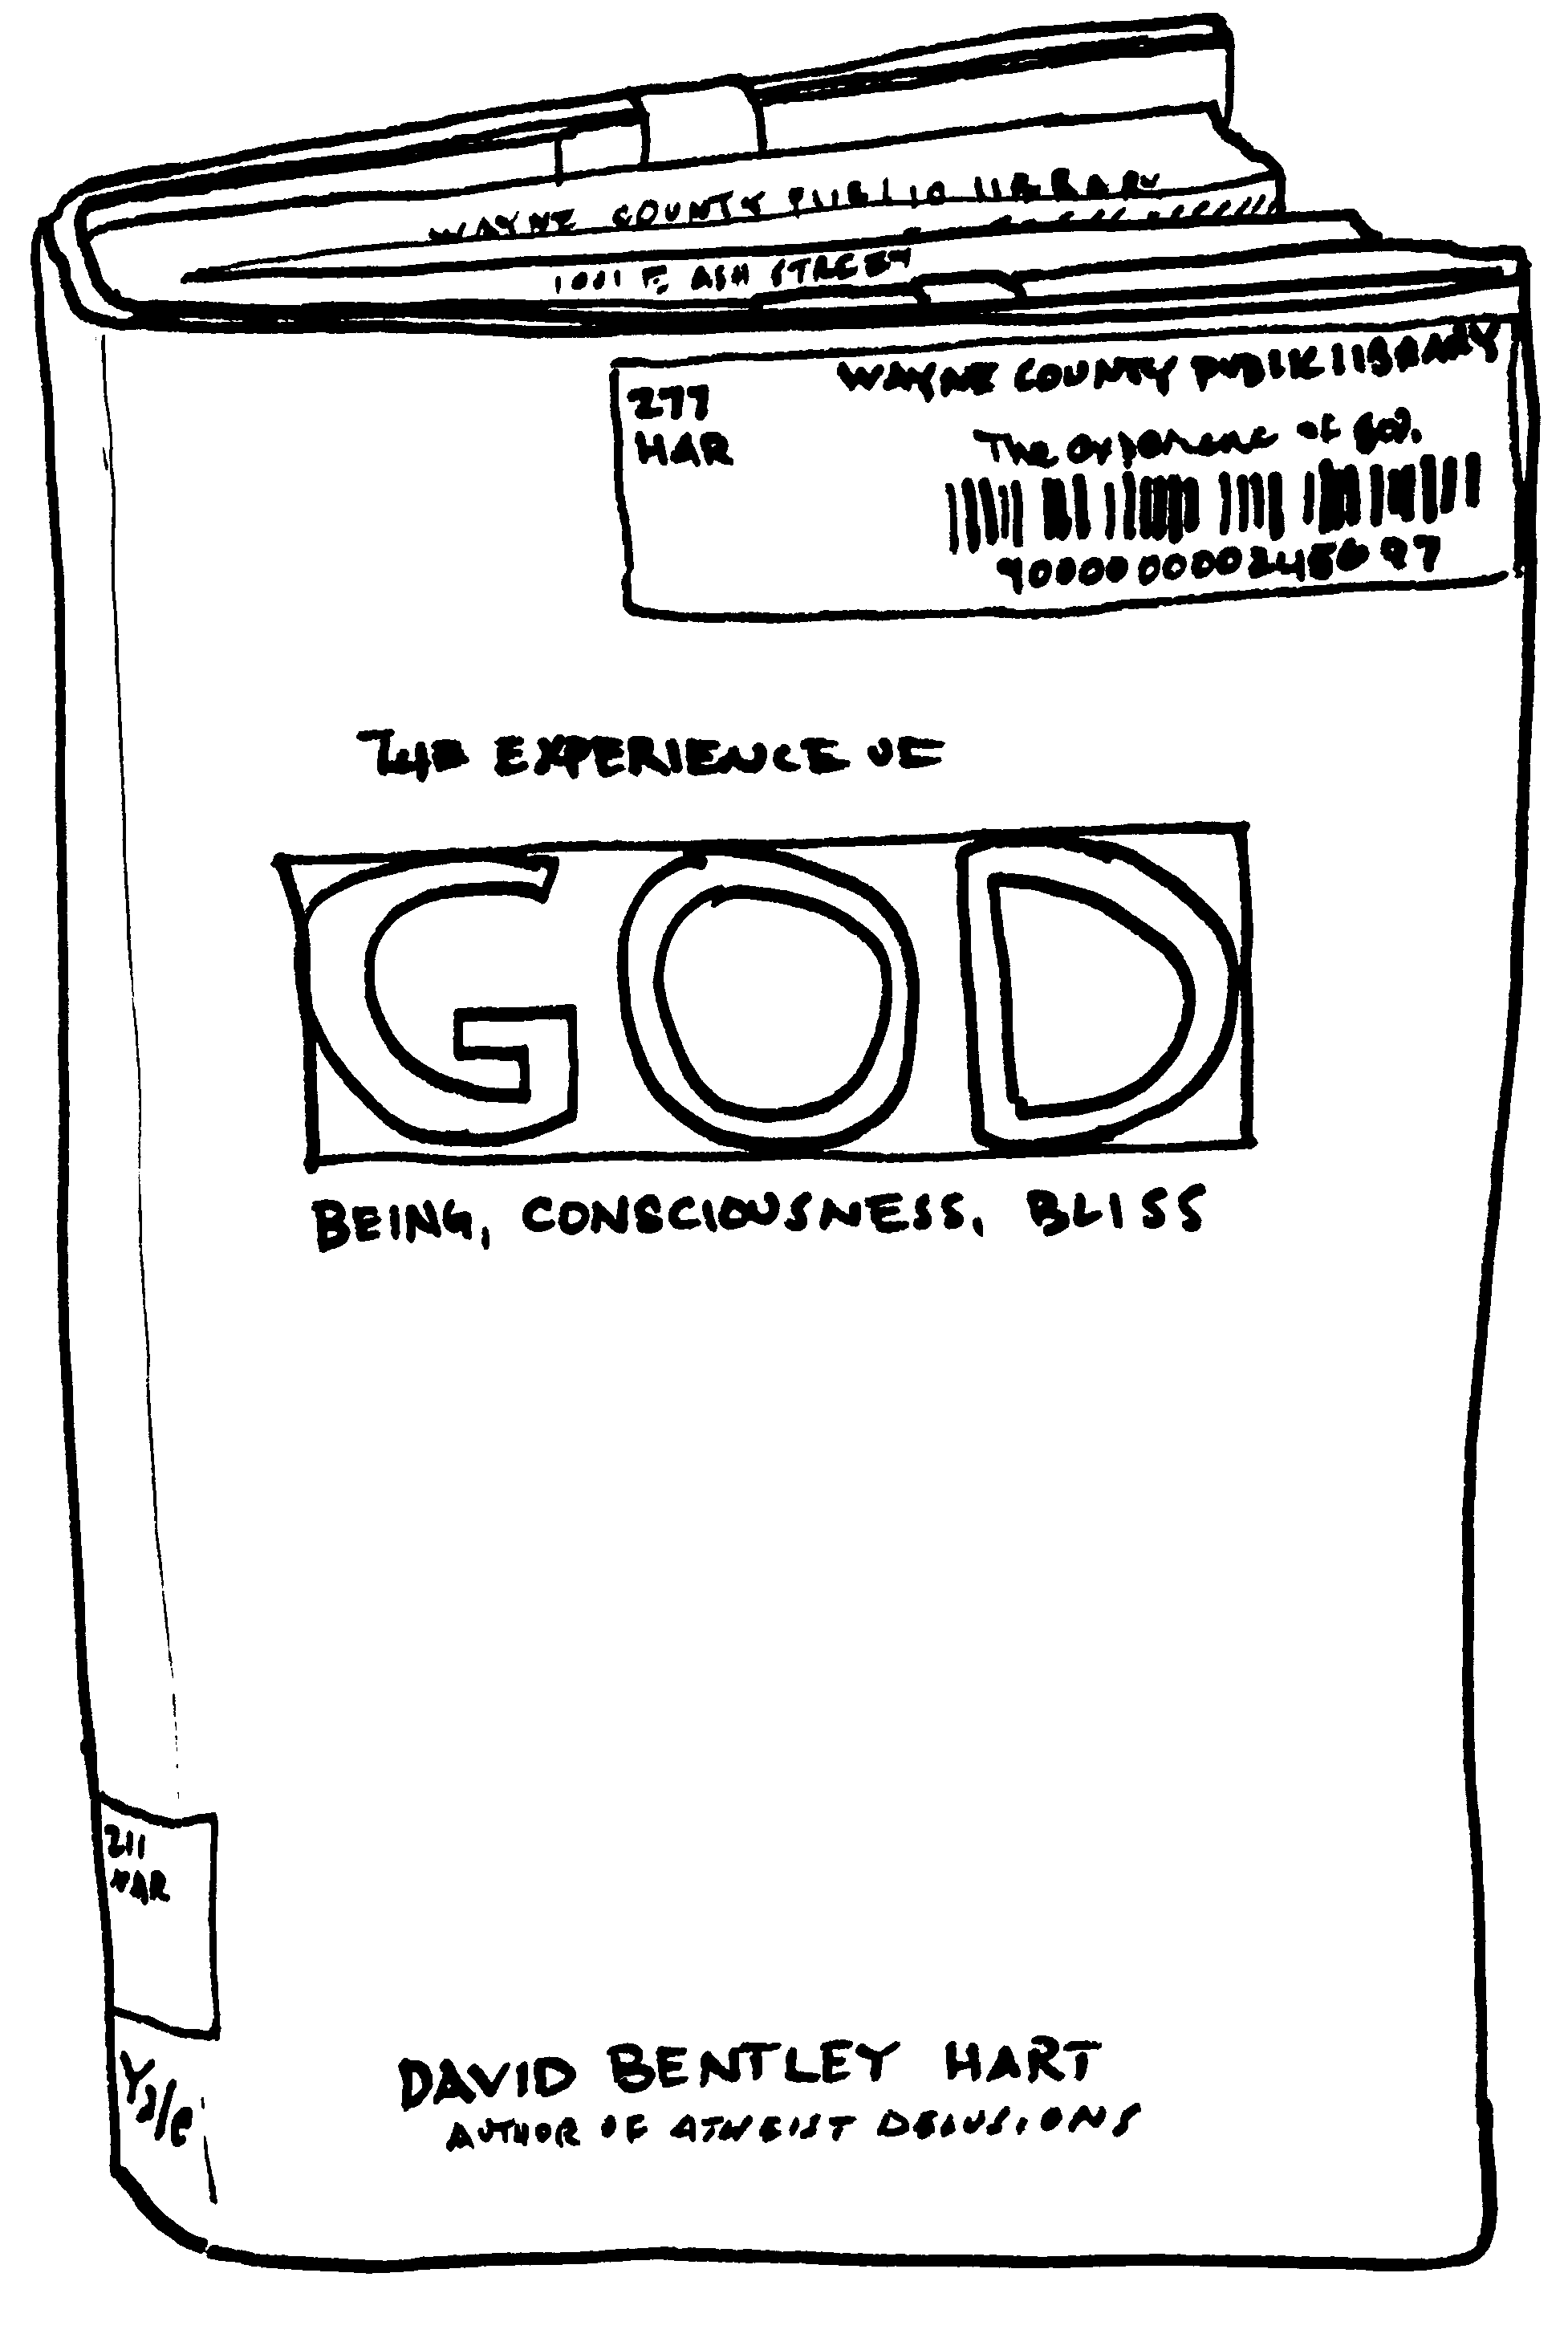 WAYNE COUNTY PUBLIC LIBRARY
1001 E. ASH STREET
WAYNE COUNTY PUBLIC LIBRARY
277
HAR
The experience of God.
THE EXPERIENCE OF
GOD
BEING, CONSCIOUSNESS, BLISS
211
HAR
Yale
DAVID BENTLEY HART
AUTHOR OF ATHEIST DELUSIONS